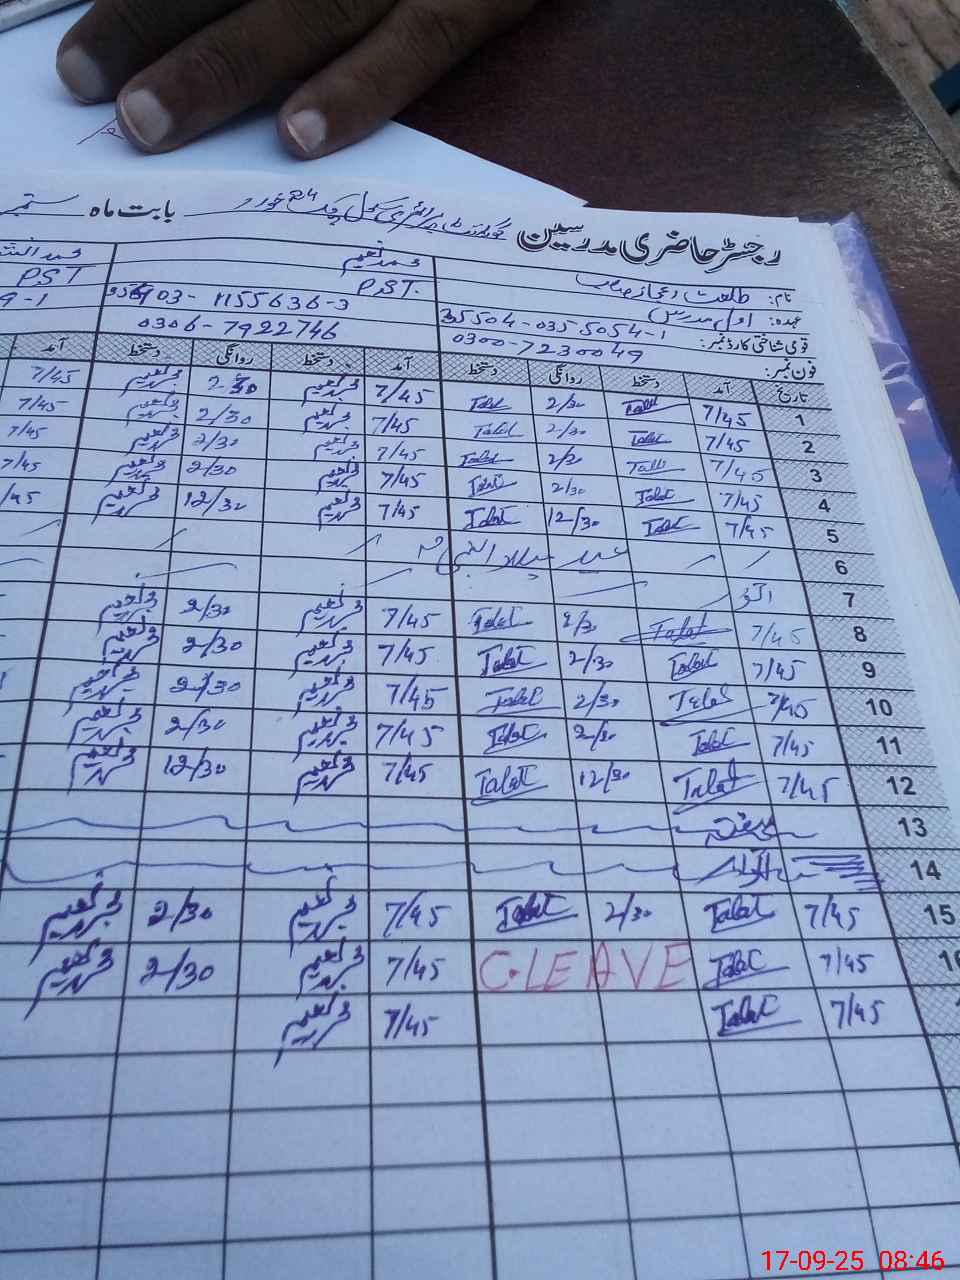 رجسٹر حاضری مدرسین گورنمنٹ پرائمری سکول چک بابت ماہ ستمبر
نام: طلعت اعجاز محمد نعیم
عہدہ: اول مدرس PST. PST
قومی شناختی کارڈ نمبر: 35504-0355054-1 03-1155636-3 9-1
فون نمبر: 0300-7230049 0306-7922746
تاریخ آمد دستخط روانگی دستخط آمد دستخط روانگی دستخط آمد
1 7/45 Talat 2/30 Talat 7/45 محمد نعیم 2/30 محمد نعیم 7/45
2 7/45 Talat 2/30 Talat 7/45 محمد نعیم 2/30 محمد نعیم 7/45
3 7/45 Talat 2/30 Talat 7/45 محمد نعیم 2/30 محمد نعیم 7/45
4 7/45 Talat 2/30 Talat 7/45 محمد نعیم 2/30 محمد نعیم 7/45
5 7/45 Talat 12/30 Talat 7/45 محمد نعیم 12/30 محمد نعیم 7/45
6 عید میلاد النبی
7 اتوار
8 7/45 Talat 2/30 Talat 7/45 محمد نعیم 2/30 محمد نعیم
9 7/45 Talat 2/30 Talat 7/45 محمد نعیم 2/30 محمد نعیم
10 7/45 Talat 2/30 Talat 7/45 محمد نعیم 2/30 محمد نعیم
11 7/45 Talat 2/30 Talat 7/45 محمد نعیم 2/30 محمد نعیم
12 7/45 Talat 12/30 Talat 7/45 محمد نعیم 12/30 محمد نعیم
13 ہفتہ
14 اتوار
15 7/45 Talat 2/30 Talat 7/45 محمد نعیم 2/30 محمد نعیم
16 7/45 Talat C.LEAVE 7/45 محمد نعیم 2/30 محمد نعیم
7/45 Talat 7/45 محمد نعیم
17-09-25 08:46